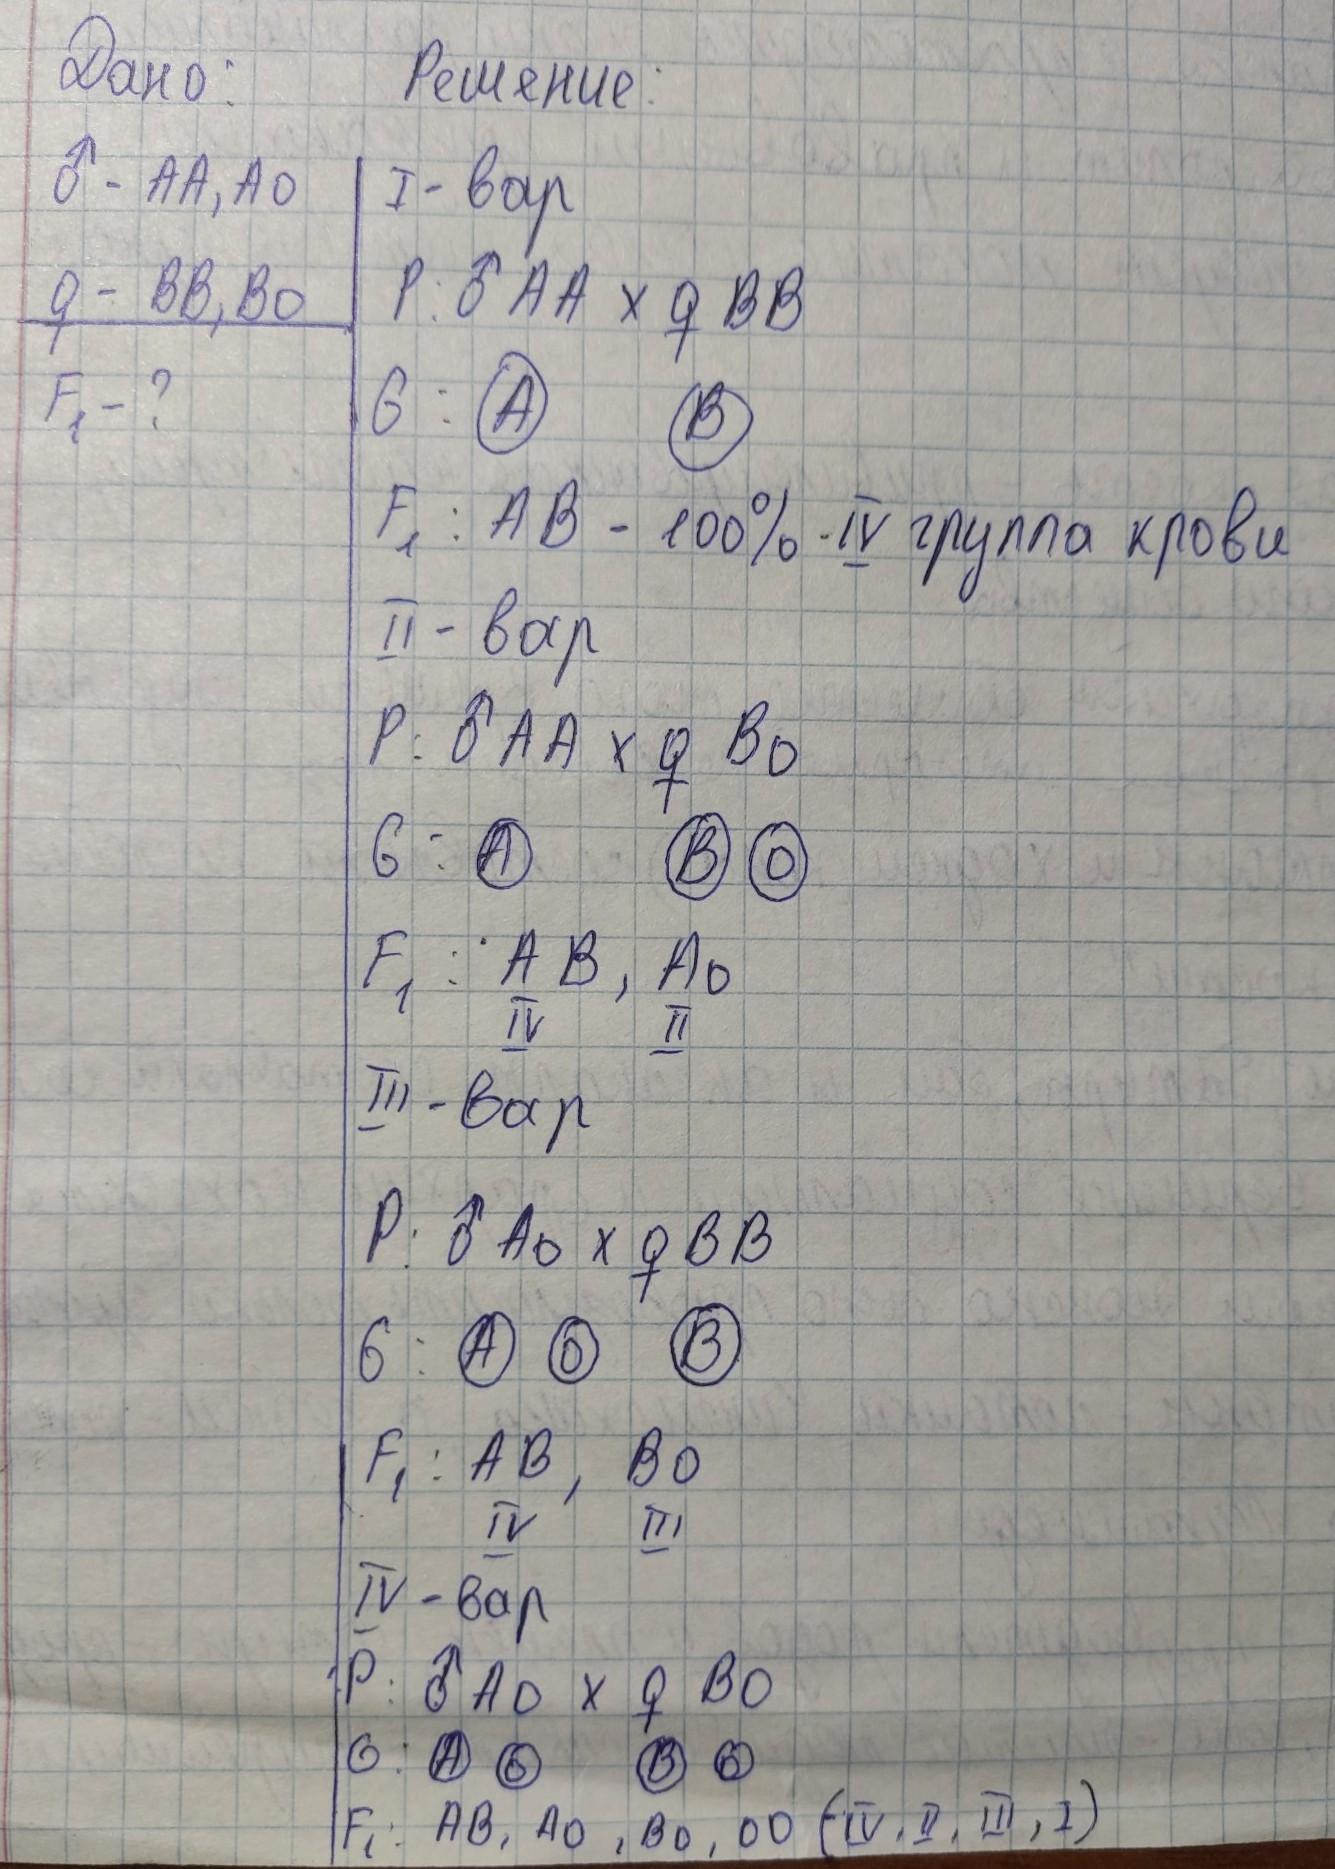 Дано:
♂ - AA, AO
♀ - BB, BO
F₁ - ?
Решение:
I - вар
P: ♂ AA x ♀ BB
G: A B
F₁: AB - 100% - IV группа крови
II - вар
P: ♂ AA x ♀ BO
G: A B O
F₁: AB, AO
IV II
III - вар
P: ♂ AO x ♀ BB
G: A O B
F₁: AB, BO
IV III
IV - вар
P: ♂ AO x ♀ BO
G: A O B O
F₁: AB, AO, BO, OO (IV, II, III, I)